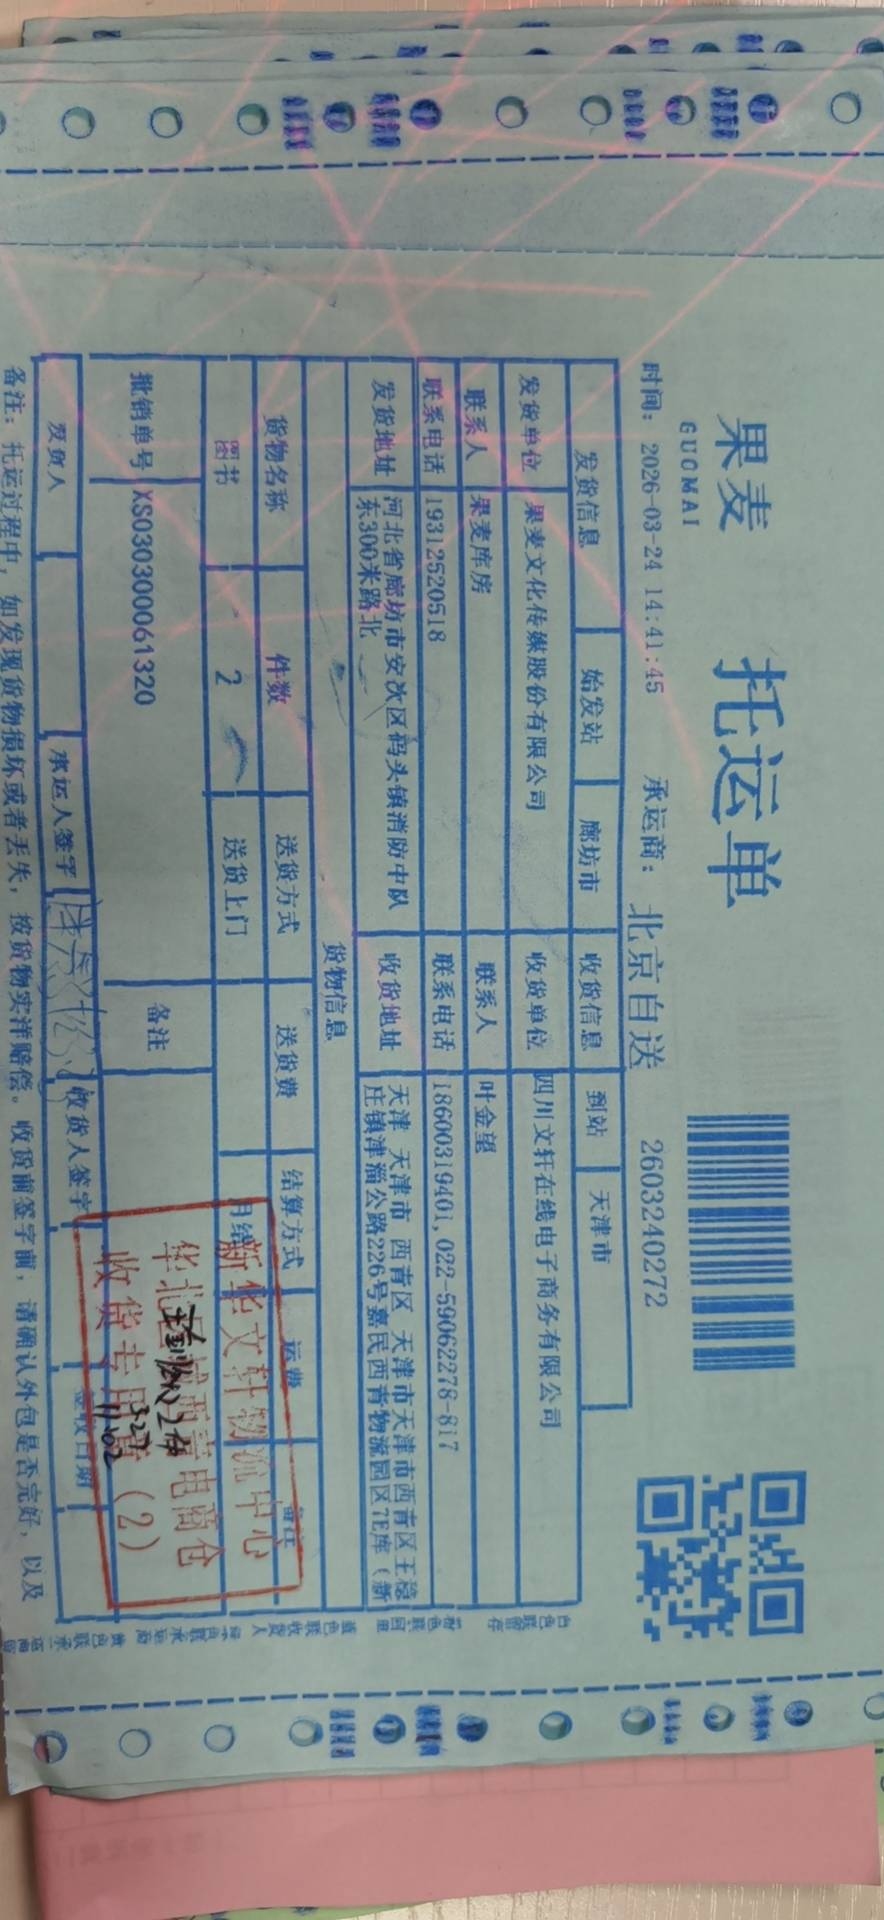 果麦
GUOMAI
托运单
时间：2026-03-24 14:41:45 承运商：北京自送 2603240272
发货信息 始发站 廊坊市 收货信息 到站 天津市
发货单位 果麦文化传媒股份有限公司 收货单位 四川文轩在线电子商务有限公司
联系人 果麦库房 联系人 叶金望
联系电话 19312520518 联系电话 18600319401,022-59062278-817
发货地址 河北省廊坊市安次区码头镇消防中队 收货地址 天津 天津市 西青区 天津市天津市西青区王稳
东300米路北 庄镇津淄公路226号嘉民西青物流园区7E库（新
货物信息
货物名称 件数 送货方式 送货费 结算方式 运费 备注
图书 2 送货上门 月结
批销单号 XS030300061320 备注
发货人 承运人签字 收货人签字 签收日期
新华文轩物流中心
华北区域西青电商仓
收货专用章（2）
3.27
11:02
备注：托运过程中，如发现货物损坏或者丢失，按货物实洋赔偿。收货前签字前，请确认外包是否完好，以及
白色联留存 粉色联回单 蓝色联收货人 绿色联承运商 黄色联